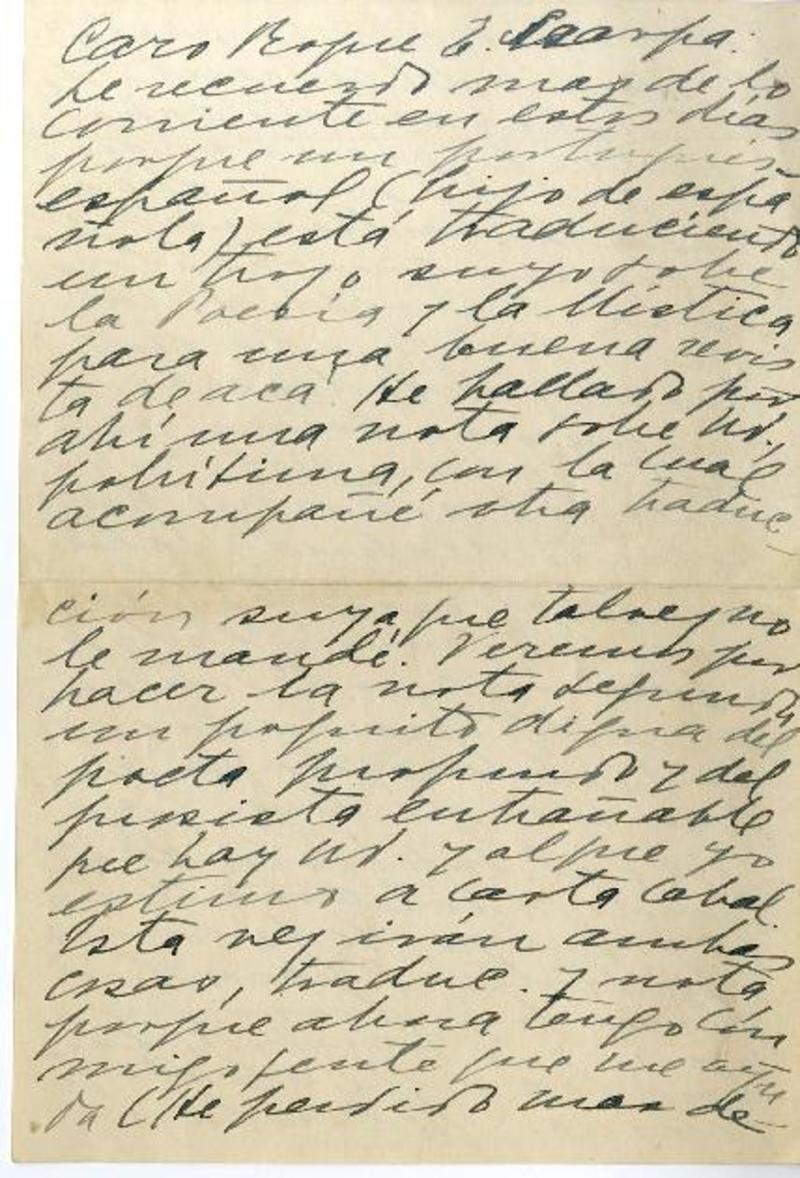 Caro Roque E. Scarpa:
Le recuerdo mas de lo
corriente en estos días
porque un portugués-
español (hijo de espa
ñola) está traduciendo
un trozo suyo sobre
la Poesía y la Mística
para una buena revis
ta de acá. He hallado por
ahí una nota sobre Ud.,
pobrísima, con la cual
acompañé otra traduc-
ción suya que talvez no
le mandé. Veremos por
hacer la nota segunda
un poquito digna del
poeta profundo y del
prosista entrañable
que hay Ud. y al que yo
estimo a carta cabal
Esta vez irán ambas
cosas, traduc. y nota
porque ahora tengo con
migo gente que me ayu
da (He perdido mas de